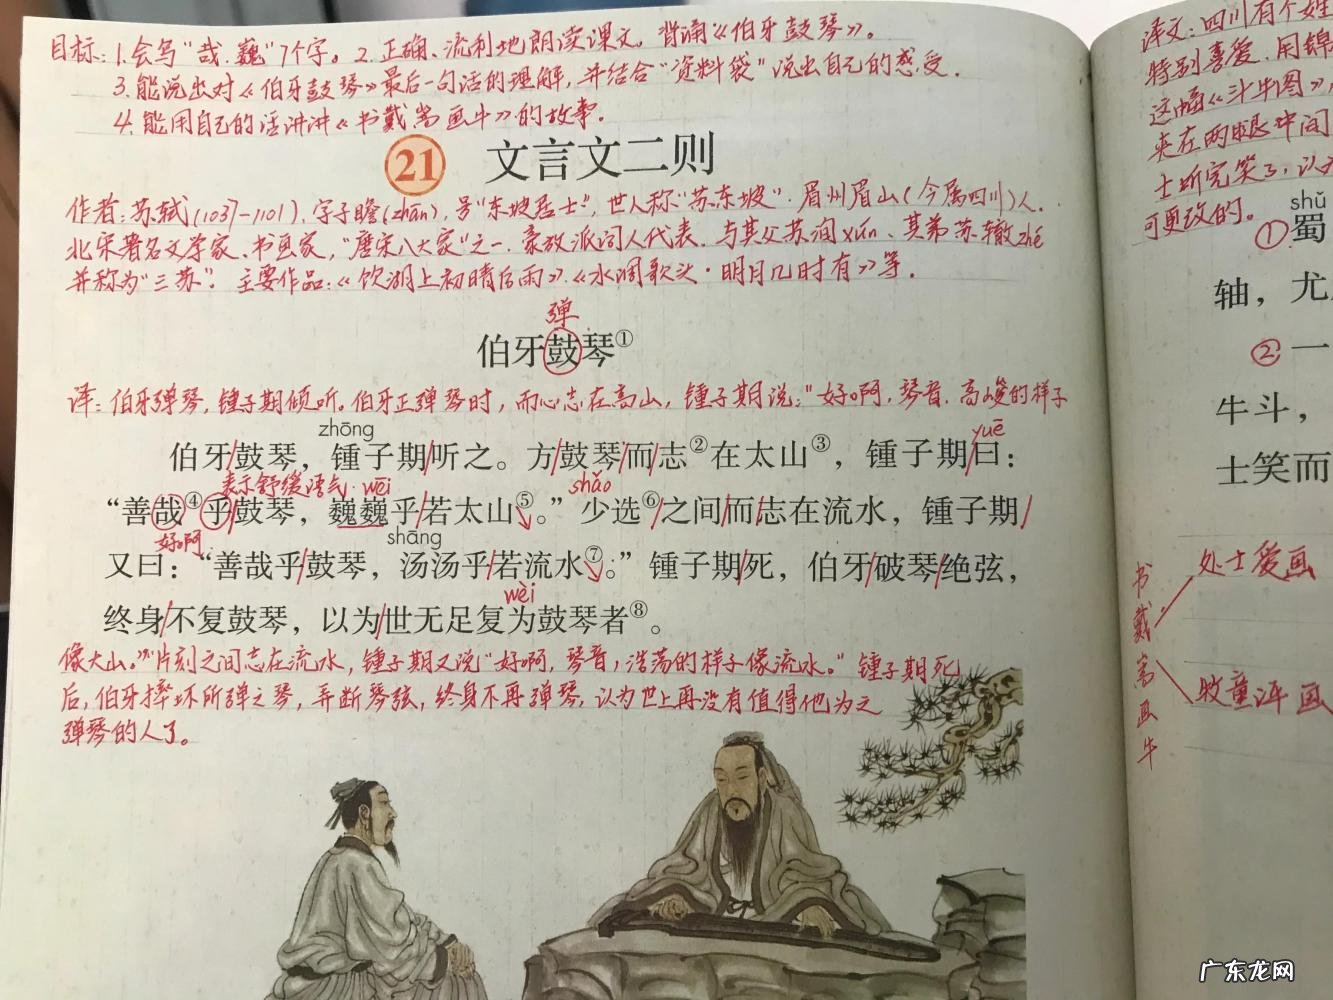 目标：1.会写“哉、巍”7个字。2.正确、流利地朗读课文。背诵《伯牙鼓琴》。
3.能说出对《伯牙鼓琴》最后一句话的理解，并结合“资料袋”说出自己的感受。
4.能用自己的话讲讲《书戴嵩画牛》的故事。
21 文言文二则
作者：苏轼(1037-1101)，字子瞻(zhān)，号“东坡居士”，世人称“苏东坡”.眉州眉山(今属四川)人.
北宋著名文学家、书画家，“唐宋八大家”之一.豪放派词人代表.与其父苏洵xún、其弟苏辙zhé
并称为“三苏”.主要作品：《饮湖上初晴后雨》.《水调歌头·明月几时有》等.
弹
伯牙鼓琴①
译：伯牙弹琴，锺子期倾听。伯牙正弹琴时，而心志在高山，锺子期说：“好啊，琴音，高峻的样子
zhōng
yuē
伯牙/鼓琴，锺子期/听之。方/鼓琴/而/志②在太山③，锺子期/曰：
表示舒缓语气. wēi
shǎo
“善哉④乎/鼓琴，巍巍乎/若太山⑤。”少选⑥/之间/而/志在流水，锺子期/
好啊
shāng
又曰：“善哉乎/鼓琴，汤汤乎/若流水⑦。”锺子期/死，伯牙/破琴/绝弦，
wèi
终身/不复鼓琴，以为/世无足复为鼓琴者⑧。
像大山。”片刻之间志在流水，锺子期又说“好啊，琴音，浩荡的样子像流水。”锺子期死
后，伯牙摔坏所弹之琴，弄断琴弦，终身不再弹琴，认为世上再没有值得他为之
弹琴的人了。
译文：四川有个姓
特别喜爱.用锦
这幅《斗牛图》，
夹在两腿中间
士听完笑了，认
可更改的。
shǔ
①蜀
轴，尤
②一
牛斗，
士笑而
书戴嵩画牛
处士爱画
牧童评画
广东龙网